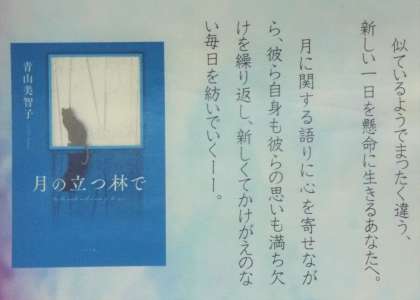 似ているようでまったく違う、
新しい一日を懸命に生きるあなたへ。
月に関する語りに心を寄せなが
ら、彼ら自身も彼らの思いも満ち欠
けを繰り返し、新しくてかけがえのな
い毎日を紡いでいく――。
青山美智子
月の立つ林で